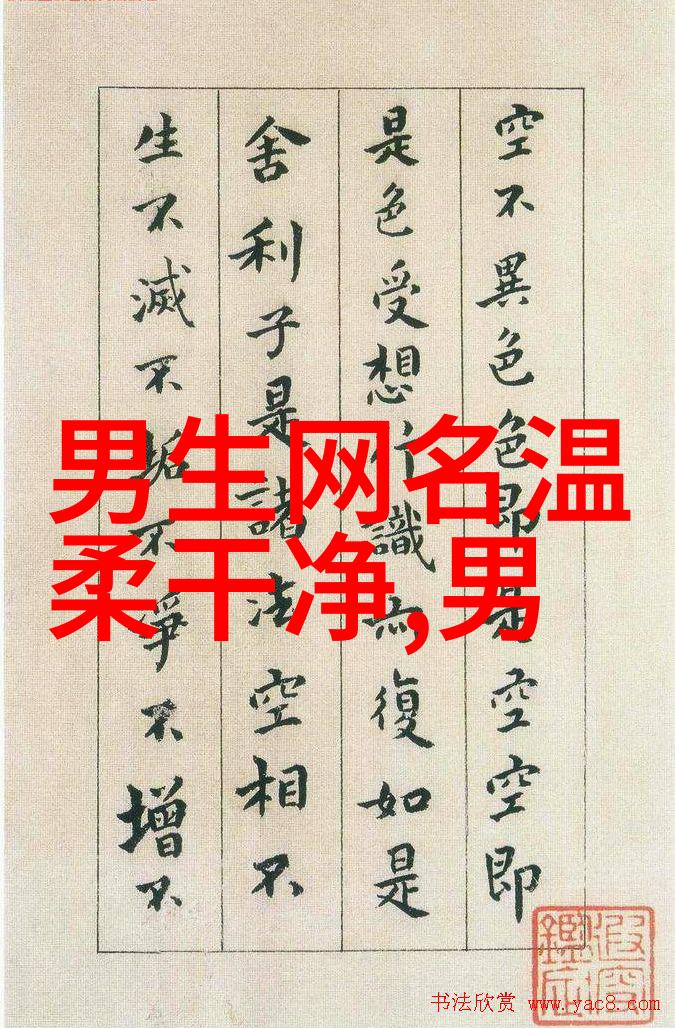 空不異色色即是空空即
是色受想行識亦復如是
舍利子是諸法空相不
生不滅不垢不淨不增不
男生网名温
柔干净,男
书法欣赏 www.yac8.com